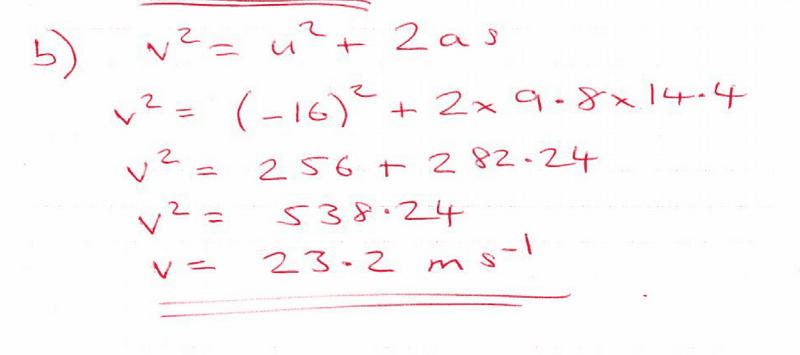 b) v² = u² + 2as
v² = (-16)² + 2 x 9.8 x 14.4
v² = 256 + 282.24
v² = 538.24
v = 23.2 ms⁻¹